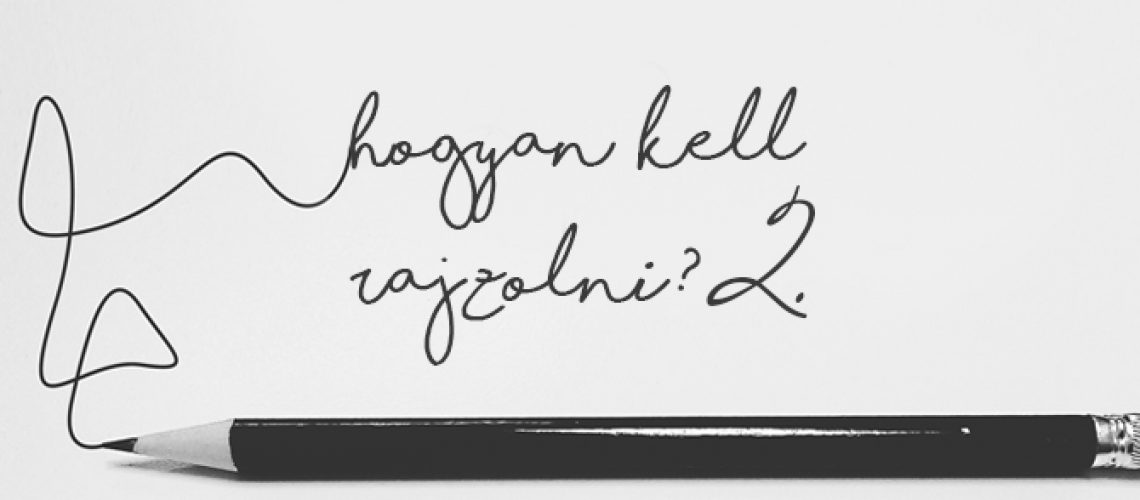 hogyan kell
rajzolni? 2.